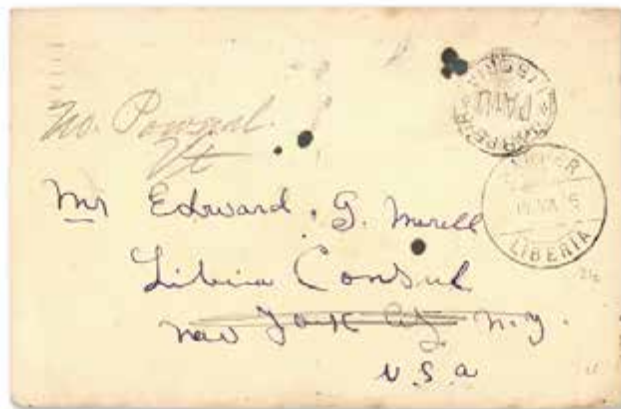 No. Pownal.
Vt
PAID
HARPER
LIBERIA
Mr Edward. G. Merell
Liberia Consul
New York City. N.Y.
U.S.a